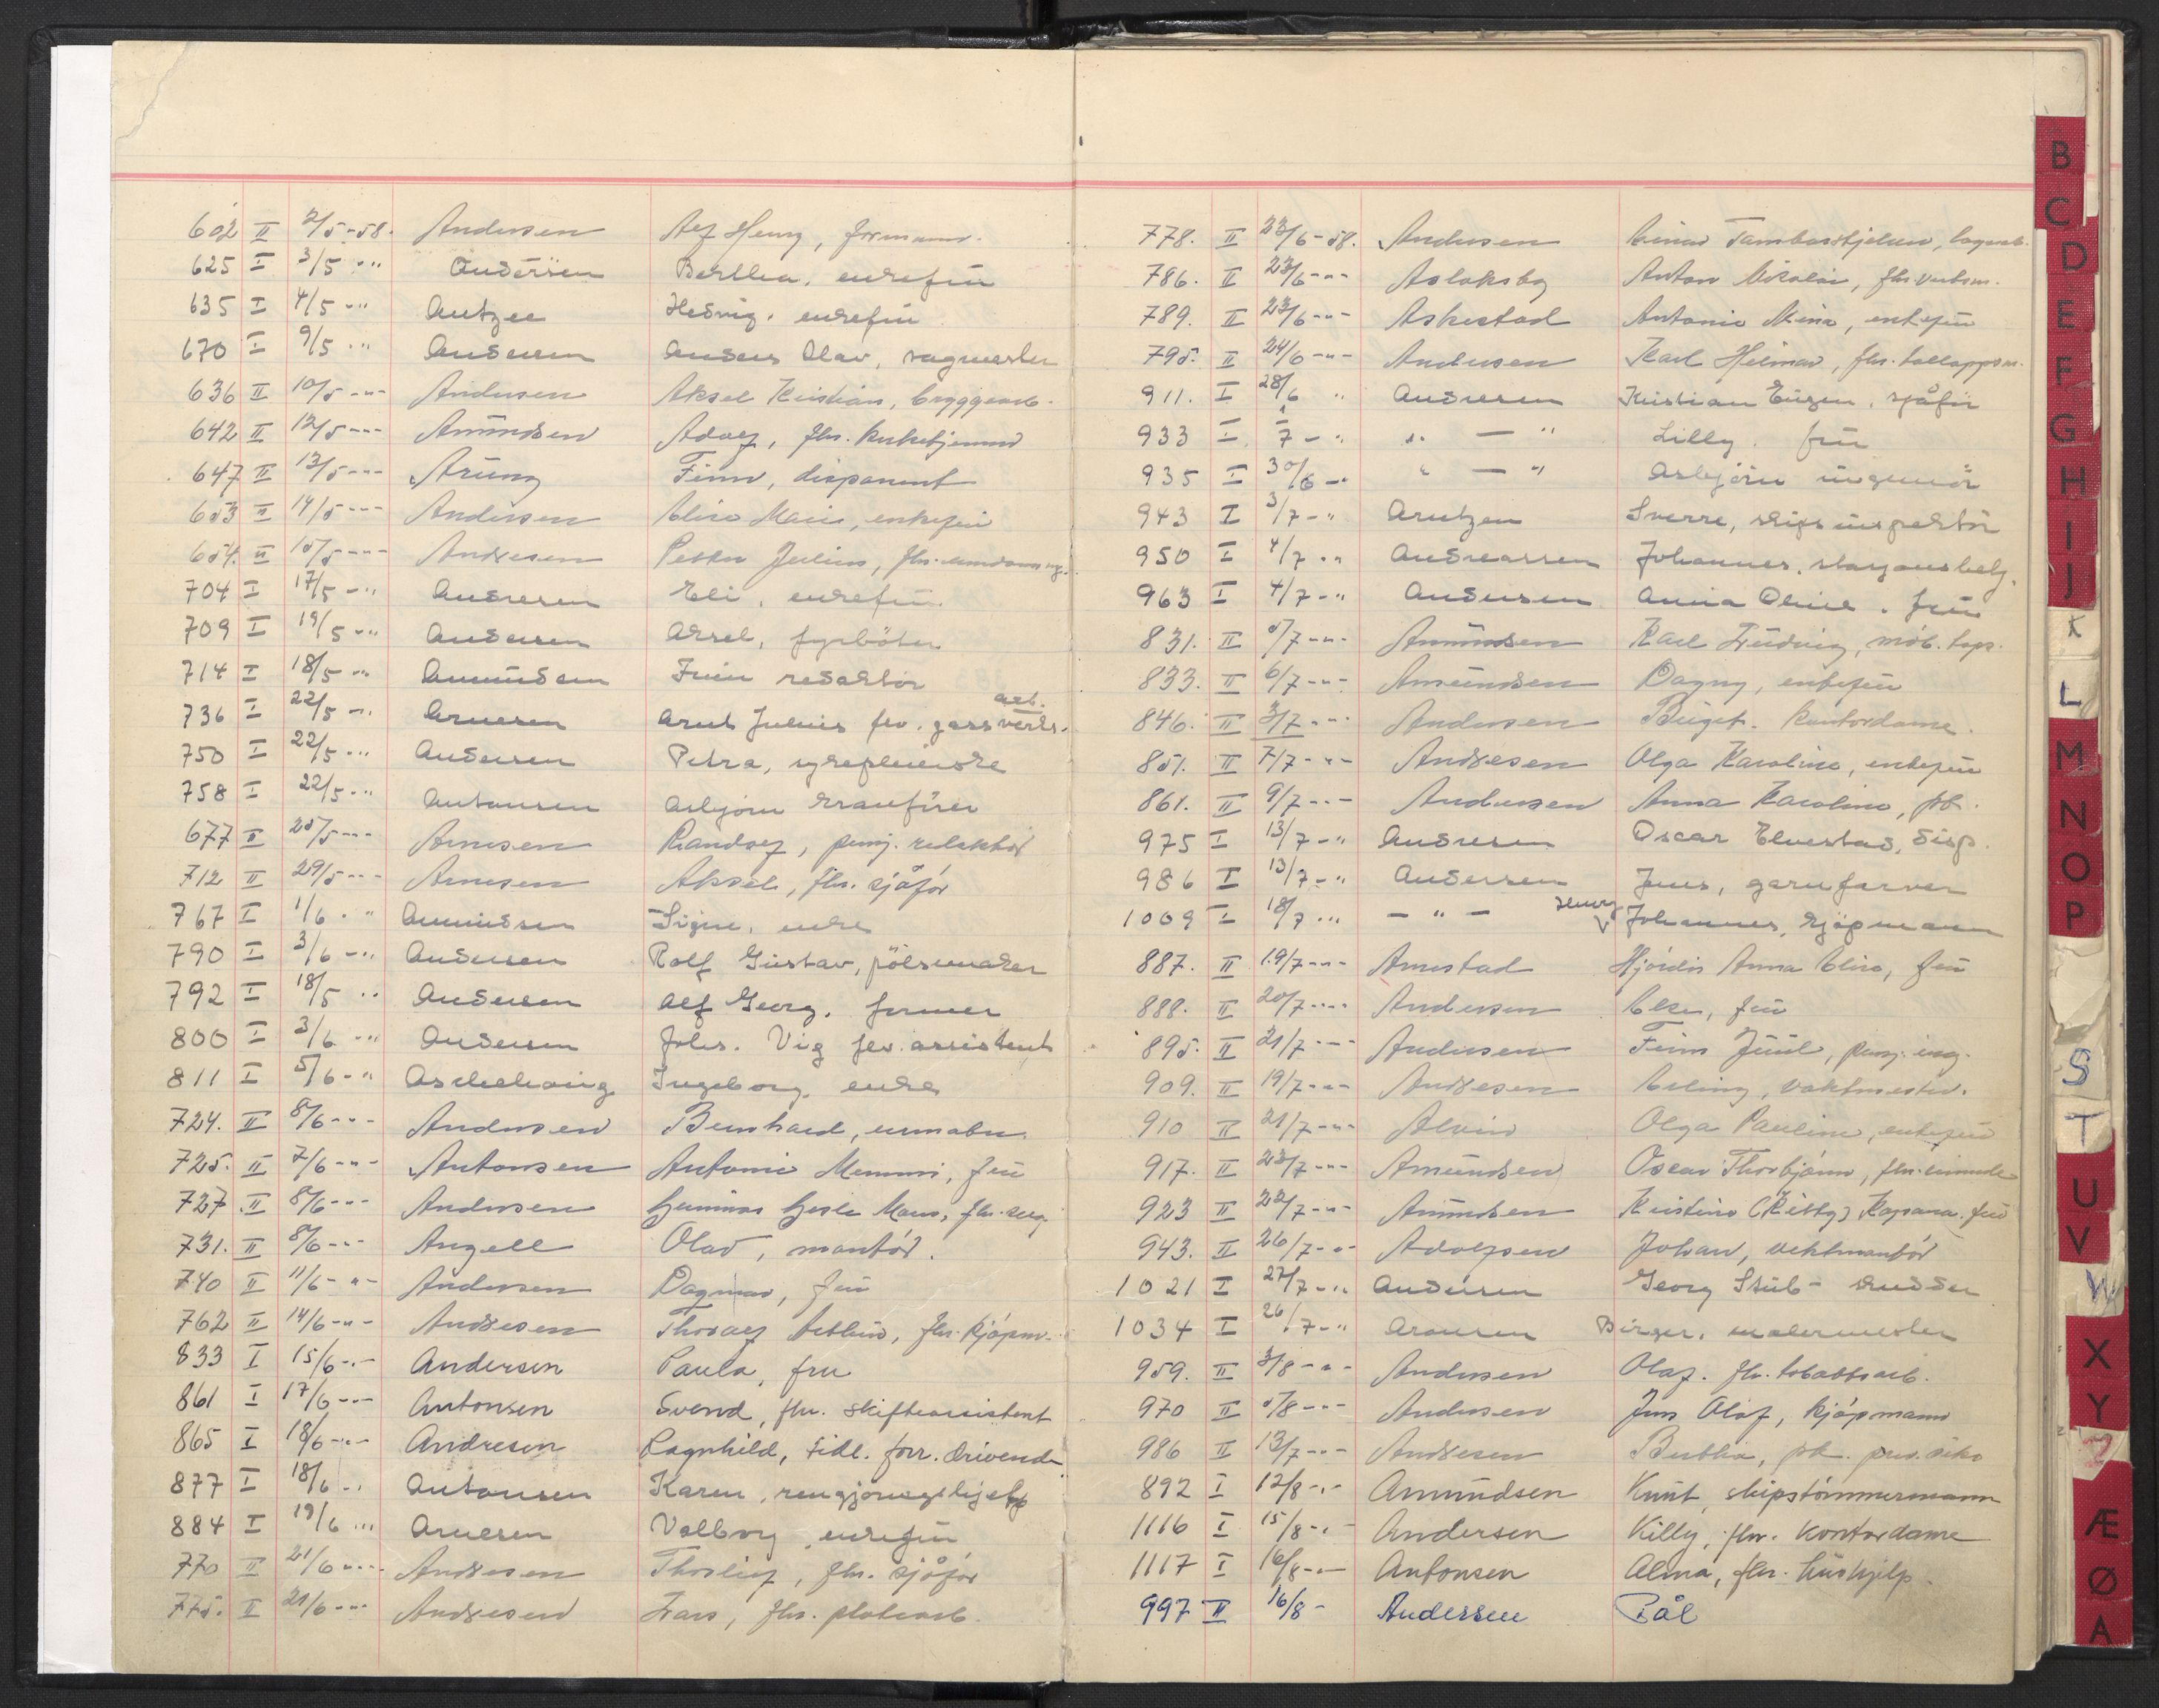 602 II 2/5-58. Andersen Alf Henry, formann.
625 I 3/5 -" Andersen Berthea, enkefru
635 I 4/5 -" Antzee Hedvig, enkefru
670 I 9/5 -" Andersen Anders Olav, vognmester
636 II 10/5 -"- Andersen Aksel Kristian, bryggearb.
642 II 12/5 -"- Amundsen Adolf, fhv.
647 II 13/5 -"- Arung Finn, disponent
653 II 14/5 -"- Andersen Marie, enkefru
654. II 15/5 -"- Andresen Petter Julius, fhv.
704 I 17/5 -" Andresen Eli, enkefru.
709 I 19/5 -" Andersen Aksel, fyrböter
714 I 18/5 -" Amundsen Finn redaktör
736 I 22/5 -" Arnesen Arnt Julius fhv. gassverks- arb.
750 I 22/5 -" Andersen Petra, sykepleierske
758 I 22/5 -" Antonsen Asbjörn kranförer
677 II 25/5 -"- Arnesen Randolf, pensj. redaktør
712 II 29/5 -"- Arnesen Aksel, fhv. sjåfør
767 I 1/6 - " Amundsen Signe, enke
790 I 3/6 -" Andersen Rolf Gustav, pölsemaker
792 I 18/5 " Andersen Alf Georg, former
800 I 3/6 -" Andersen Johs. Vig fhv. assistent
811 I 5/6 -" Aschehoug Ingeborg, enke
724. II 8/6 -"- Andersen Bernhard, urmaker
725. II 7/6 -"- Antonsen Antonie Memmi, fru
727. II 8/6 -"- Andersen Gunnar
731. II 8/6 -"- Angell Olav, montør.
740 II 11/6 -"- Andersen Dagmar, fru
762 II 14/6 -"- Andresen Thoralf fhv. kjøpm.
833 I 15/6 -"- Andersen Paula, fru
861 I 17/6 -"- Antonsen Svend, fhv. skifteassistent
865 I 18/6 -"- Andresen Ragnhild, tidl. forr. drivende
877 I 18/6 -" Antonsen Karen, rengjöringshjelp
884 I 19/6 -" Arnesen Valborg, enkefru
770 II 21/6 -"- Andresen Thorleif, fhv. sjåfør
775. II 21/6 -"- Andresen Lars, fhv. platearb.
778. II 23/6-58. Andersen Einar lagerarb.
786. II 23/6 -"- Aslaksby Anton Nikolai, fhv.
789. II 23/6 -"- Askestad Antonie Mina, enkefru
795. II 24/6 -"- Andersen Karl Hilmar, fhv. tolloppsm.
911. I 28/6 " Andresen Kristian Eugen, sjåför
933 I 1/7 - " " — " Lilly. fru
935 I 30/6 -" " — " Asbjörn ingeniör
943 I 3/7 -" Arntzen Sverre, skipsinspektör
950 I 4/7 -" Andreassen Johannes,
963 I 4/7 -" Andersen Anna Oline. fru
831. II 5/7 -"- Amundsen Karl Ludvig, møb. taps.
833. II 6/7 -"- Amundsen Dagny, enkefru
846. II 3/7 -"- Andersen Birgit. kontordame.
851. II 7/7 -"- Andresen Olga Karoline, enkefru
861. II 9/7 -"- Andersen Anna Karoline,
975 I 13/7 -" Andresen Oscar Elvestad, disp.
986 I 13/7 -" Andersen Jens, garnfarver
1009 I 18/7 -" - " - Henry Johannes, kjöpmann
887. II 19/7 -"- Arnestad Hjørdis Anna fru
888. II 20/7 -"- Andersen Else, fru
895. II 21/7 -"- Andersen Finn Juul, pensj. ing.
909. II 19/7 -"- Andresen Erling, vaktmester.
910 II 21/7 -"- Alvin Olga Pauline, enkefru
917. II 23/7 -"- Amundsen Oscar Thorbjørn, fhv.
923 II 22/7 -"- Amundsen Kristine (Kitty) Kaspara. fru
943. II 26/7 -"- Adolfsen Johan, vektmontør
1021 I 27/7 -" Andersen Georg Stub-
1034 I 26/7 -" Aronsen Birger, malermester
959. II 3/8 -"- Andersen Olaf. fhv. tobakksarb.
970 II 5/8 -"- Andersen Jens Olaf, kjøpmann
986 II 13/7 -"- Andresen
892 I 12/8 -"- Amundsen Knut, skipstömmermann
1116 I 15/8 -"- Andersen Killy, fhv. kontordame
1117 I 16/8 -"- Antonsen Alma, fhv. hushjelp.
997 II 16/8 - Andersen Pål
B
C
D
E
F
G
H
I
J
K
L
M
N
O
P
S
T
U
V
W
X
Y
Z
Æ
Ø
A